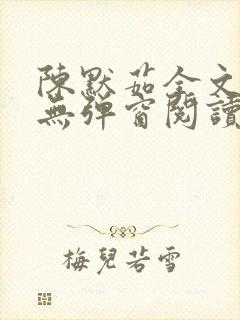 陳默茹全文
無彈窗閱讀
梅兒若雪